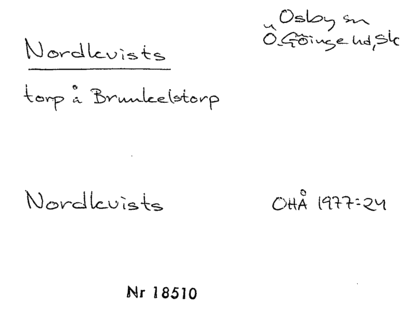 Nordkvists
Osby sn
Ö. Göinge hd, Sk
torp å Brunkelstorp
Nordkvists
OHÅ 1977:24
Nr 18510